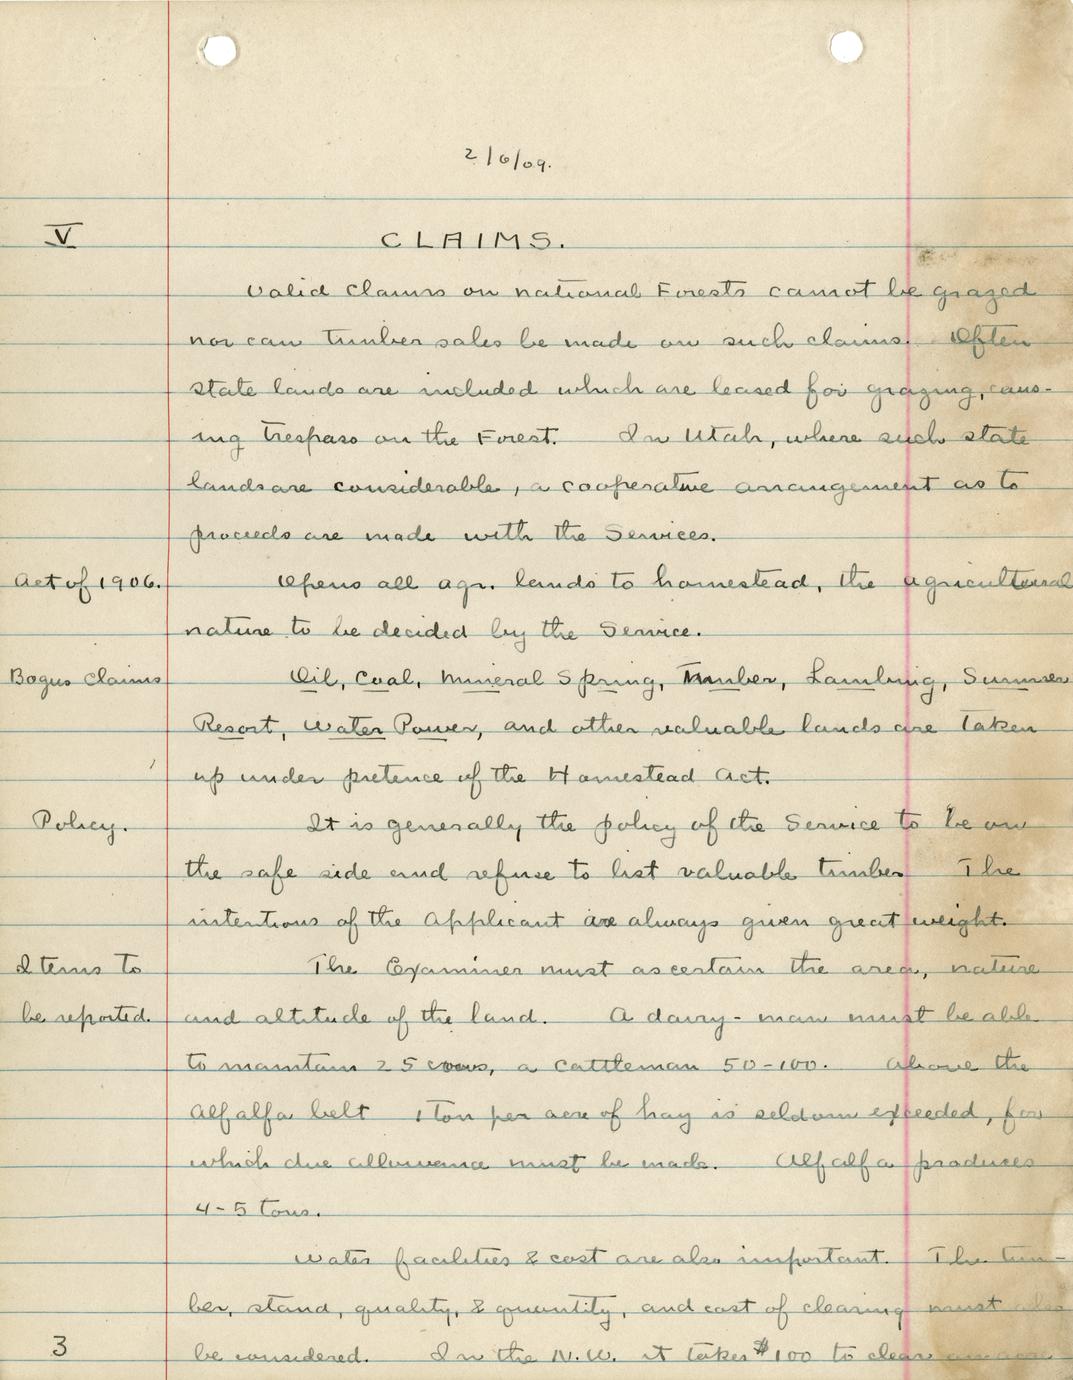 2/6/09.
V CLAIMS.
Valid Claims on national Forests cannot be grazed
nor can timber sales be made on such claims. Often
state lands are included which are leased for grazing, caus-
ing trespass on the Forest. In Utah, where such state
lands are considerable, a cooperative arrangement as to
proceeds are made with the Services.
Act of 1906. Opens all agr. lands to homestead, the agricultural
nature to be decided by the Service.
Bogus Claims Oil, Coal, Mineral Spring, Timber, Lambing, Summer
Resort, Water Power, and other valuable lands are taken
up under pretence of the Homestead Act.
Policy. It is generally the policy of the Service to be on
the safe side and refuse to list valuable timber The
intentions of the Applicant are always given great weight.
Items to The Examiner must ascertain the area, nature
be reported. and altitude of the land. A dairy-man must be able
to maintain 25 cows, a cattleman 50-100. Above the
Alfalfa belt 1 Ton per acre of hay is seldom exceeded, for
which due allowance must be made. Alfalfa produces
4-5 tons.
Water facilities & cost are also important. The tim-
ber, stand, quality, & quantity, and cost of clearing must also
3 be considered. In the N.W. it takes $100 to clear an acre